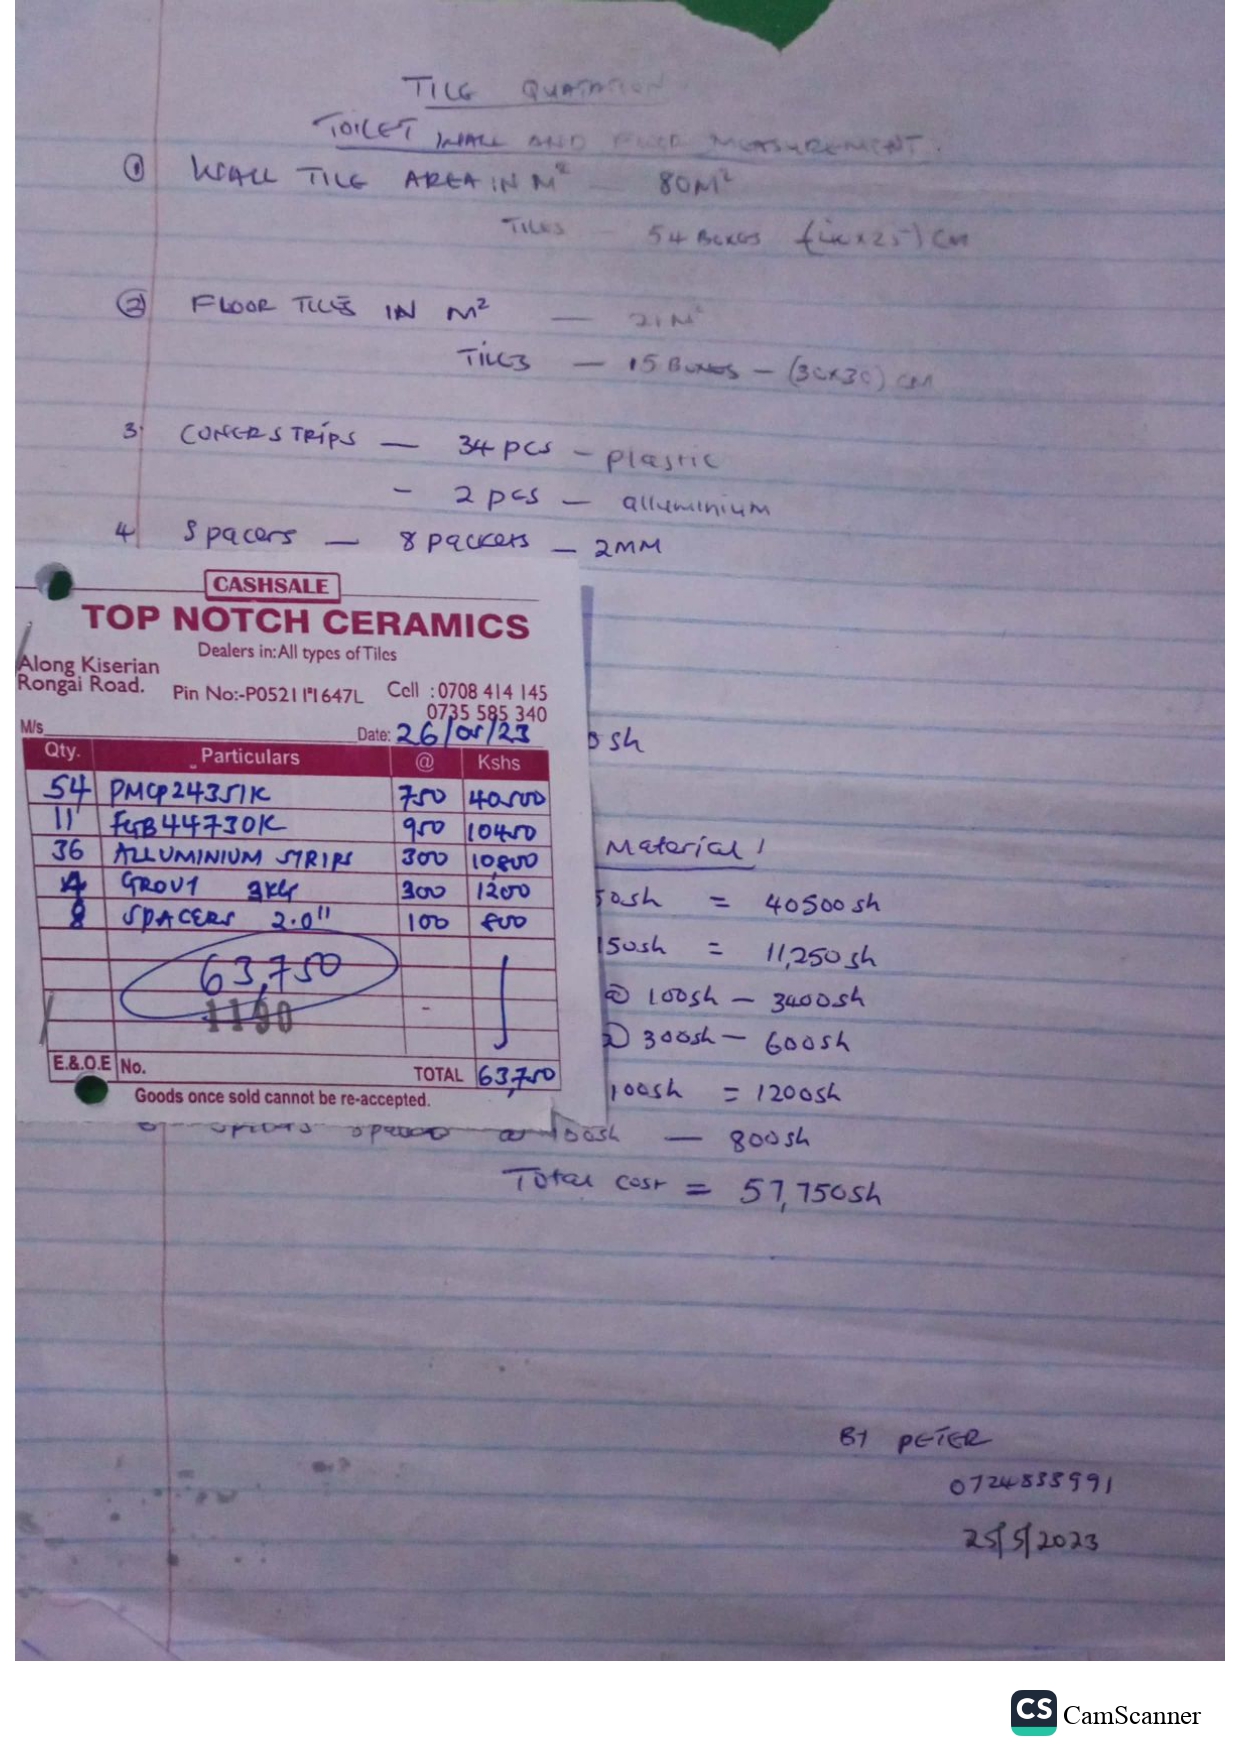 TILE QUATATION
TOILET WALL AND FLOOR MEASUREMENT.
① WALL TILE AREA IN M² — 80M²
TILES — 54 BOXES (40x25) CM
② FLOOR TILES IN M² — 21M²
TILES — 15 BOXES — (30x30) CM
3. CONERSTRIPS — 34 pcs — plastic
- 2 pcs — alluminium
4 Spacers — 8 packets — 2MM
CASHSALE
TOP NOTCH CERAMICS
Dealers in: All types of Tiles
Along Kiserian
Rongai Road. Pin No:-P052111647L Cell : 0708 414 145
0735 585 340
M/s Date: 26/05/23
sh
Qty. Particulars @ Kshs
54 PMCP24351K 750 40500
11 FGB44730K 950 10450
36 ALLUMINIUM STRIPS 300 10,800
4 GROUT 3KG 300 1200
8 SPACERS 2.0" 100 800
63,750
1190
E.&.O.E No. TOTAL 63,750
Goods once sold cannot be re-accepted.
Material
50sh = 40500sh
150sh = 11,250sh
@ 100sh — 3400sh
@ 300sh — 600sh
100sh = 1200sh
@ 100sh — 800sh
Total cost = 57,750sh
BY PETER
0724838991
25/5/2023
CS CamScanner